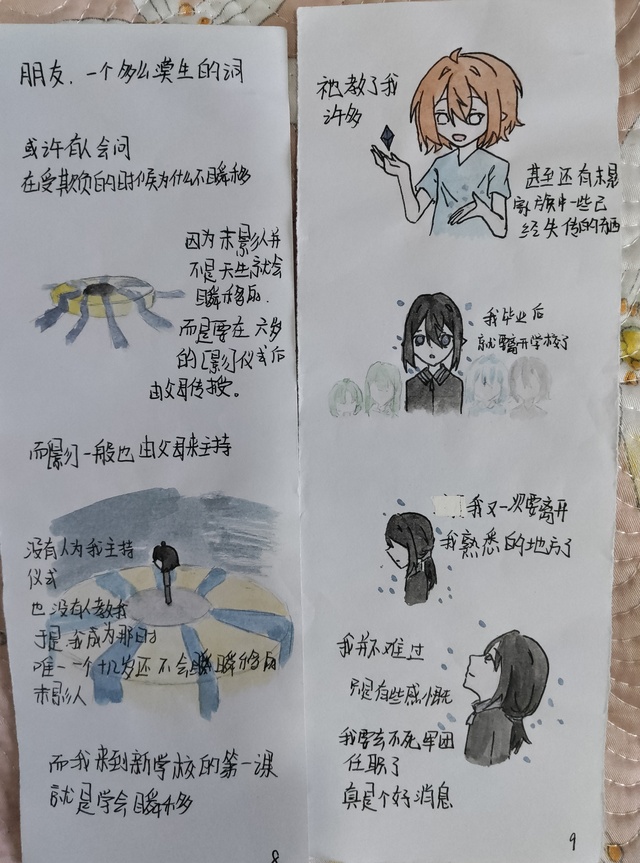 朋友，一个多么漠生的词
或许有人会问
在受欺负的时候为什么不瞬移
因为末影人并
不是天生就会
瞬移的.
而是要在六岁
的[影]仪式后
由父母传授。
而影一般也由父母来主持
没有人为我主持
仪式
也没有人教我
于是我成为那时
唯一一个十几岁还不会瞬瞬移的
末影人
而我来到新学校的第一课
就是学会瞬移
8
祂教了我
许多
甚至还有末影
家族中一些已
经失传的东西
我毕业后
就要离开学校了
我又一次要离开
我熟悉的地方了
我并不难过
只是有些感慨
我要去不死军团
任职了
真是个好消息
9